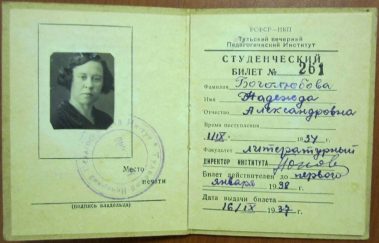 Место
печати
(подпись владельца)
РСФСР—НКП
Тульский вечерний
Педагогический Институт
СТУДЕНЧЕСКИЙ
БИЛЕТ № 261
Фамилия Боголюбова
Имя Надежда
Отчество Александровна
Время поступления
1/IX 1934 г.
Факультет литературный
ДИРЕКТОР ИНСТИТУТА
Билет действителен до первого
января 1938 г.
Дата выдачи билета
16/IX 1937 г.